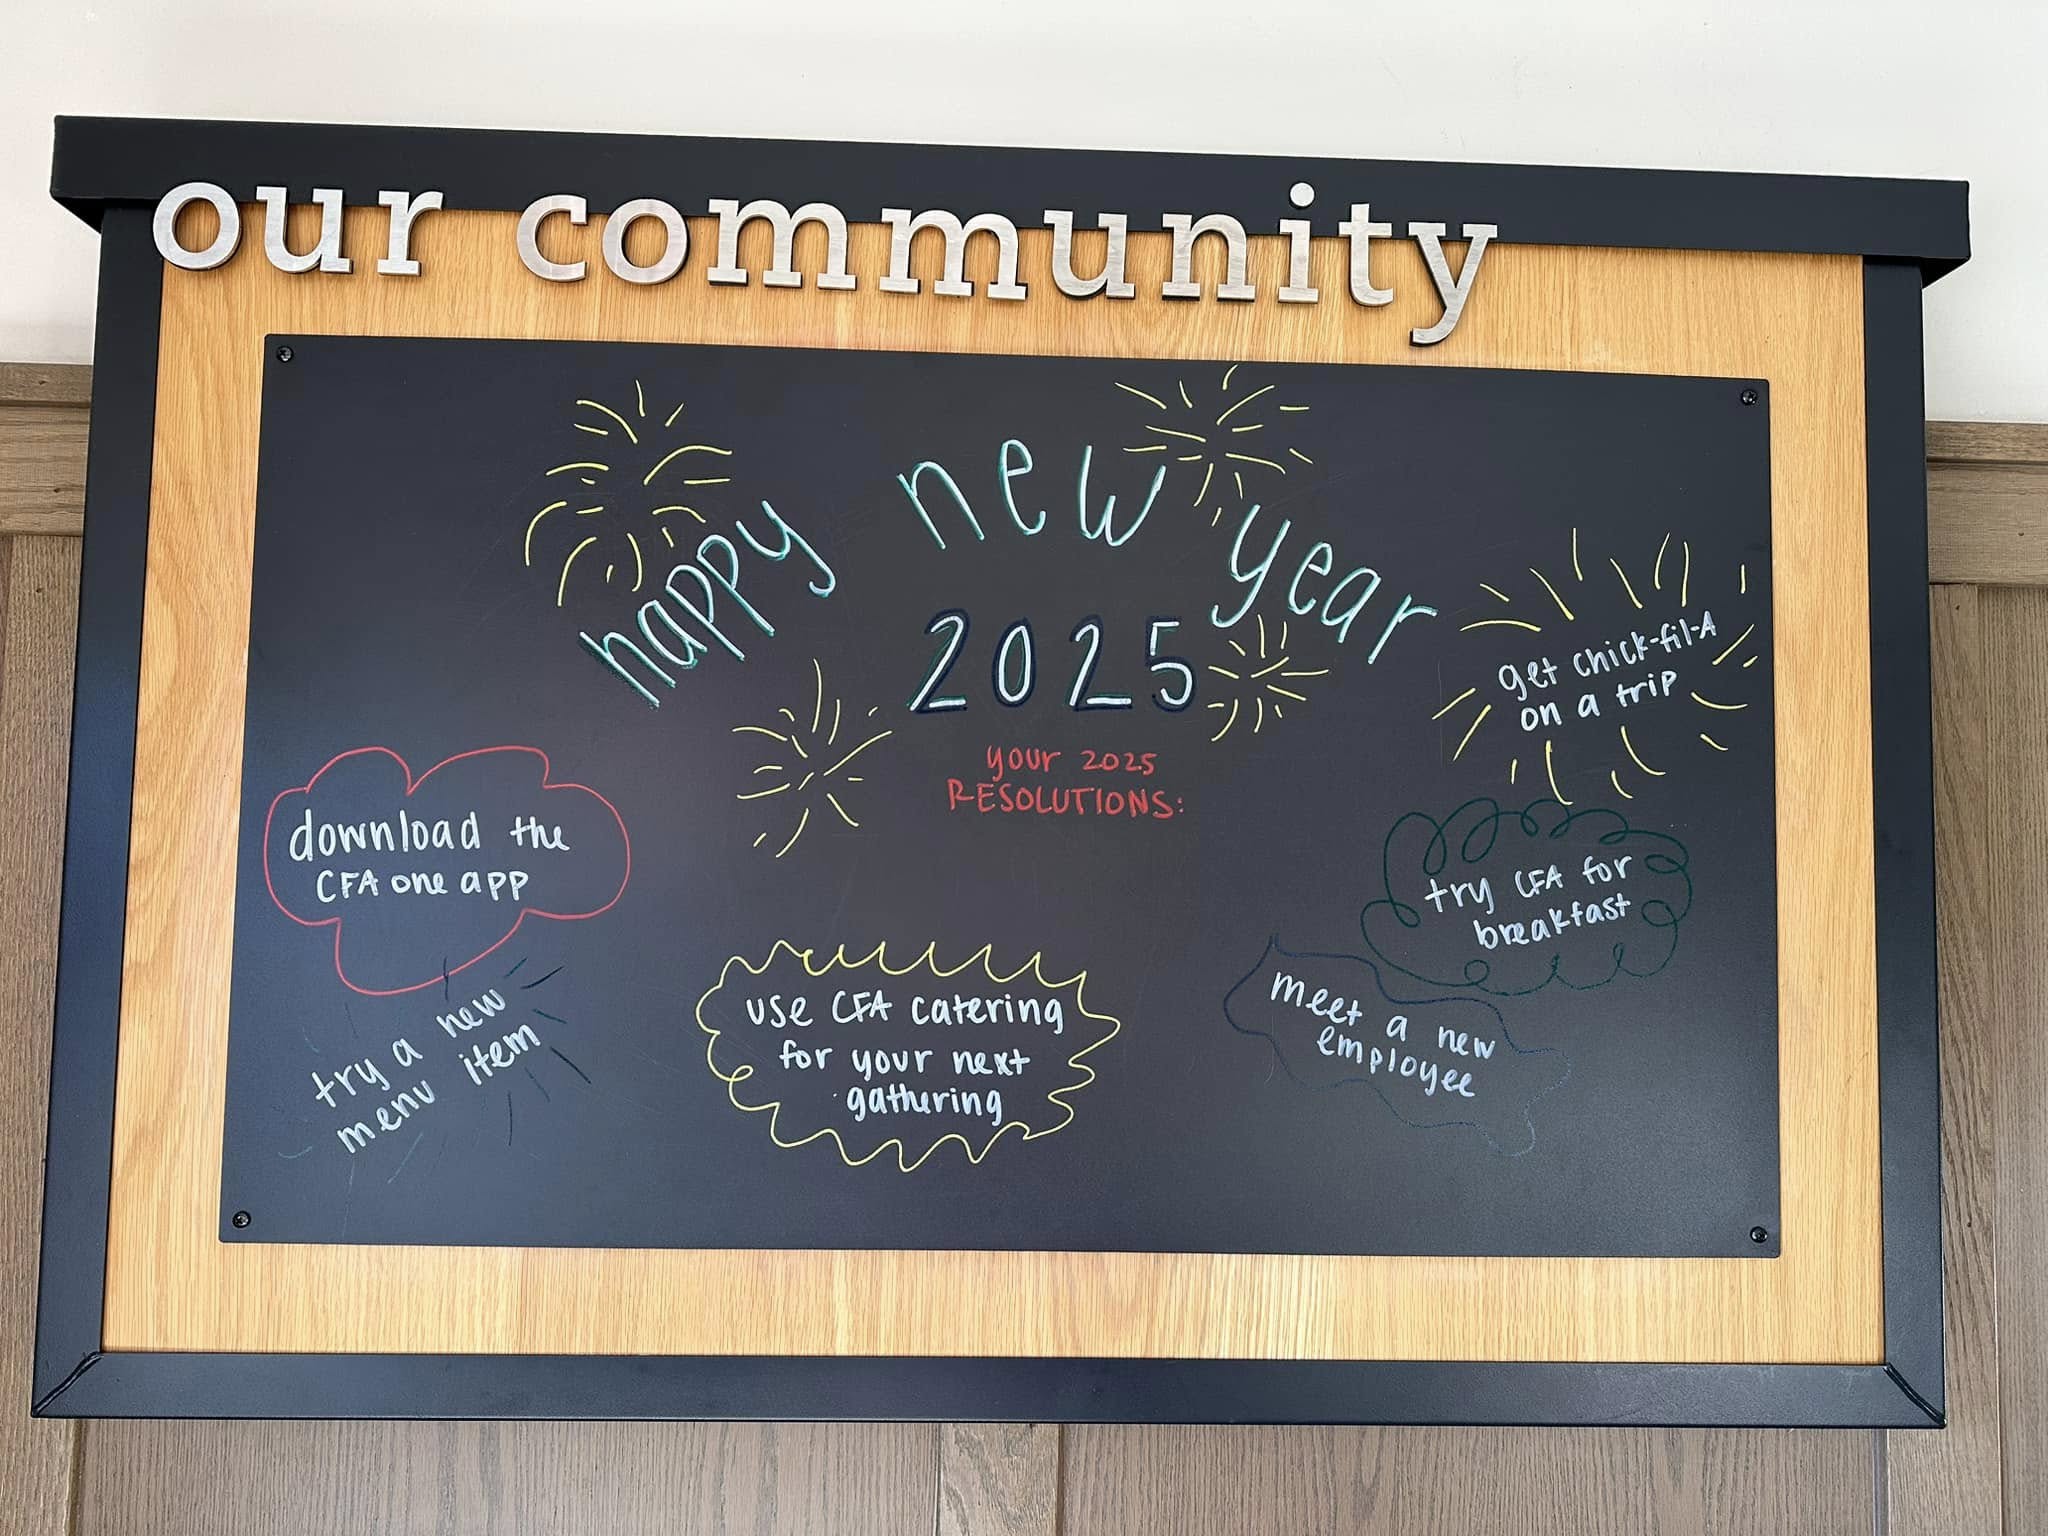 our community
happy new year
2025
your 2025
RESOLUTIONS:
get chick-fil-A
on a trip
download the
CFA one app
try CFA for
breakfast
try a new
menu item
use CFA catering
for your next
gathering
meet a new
employee